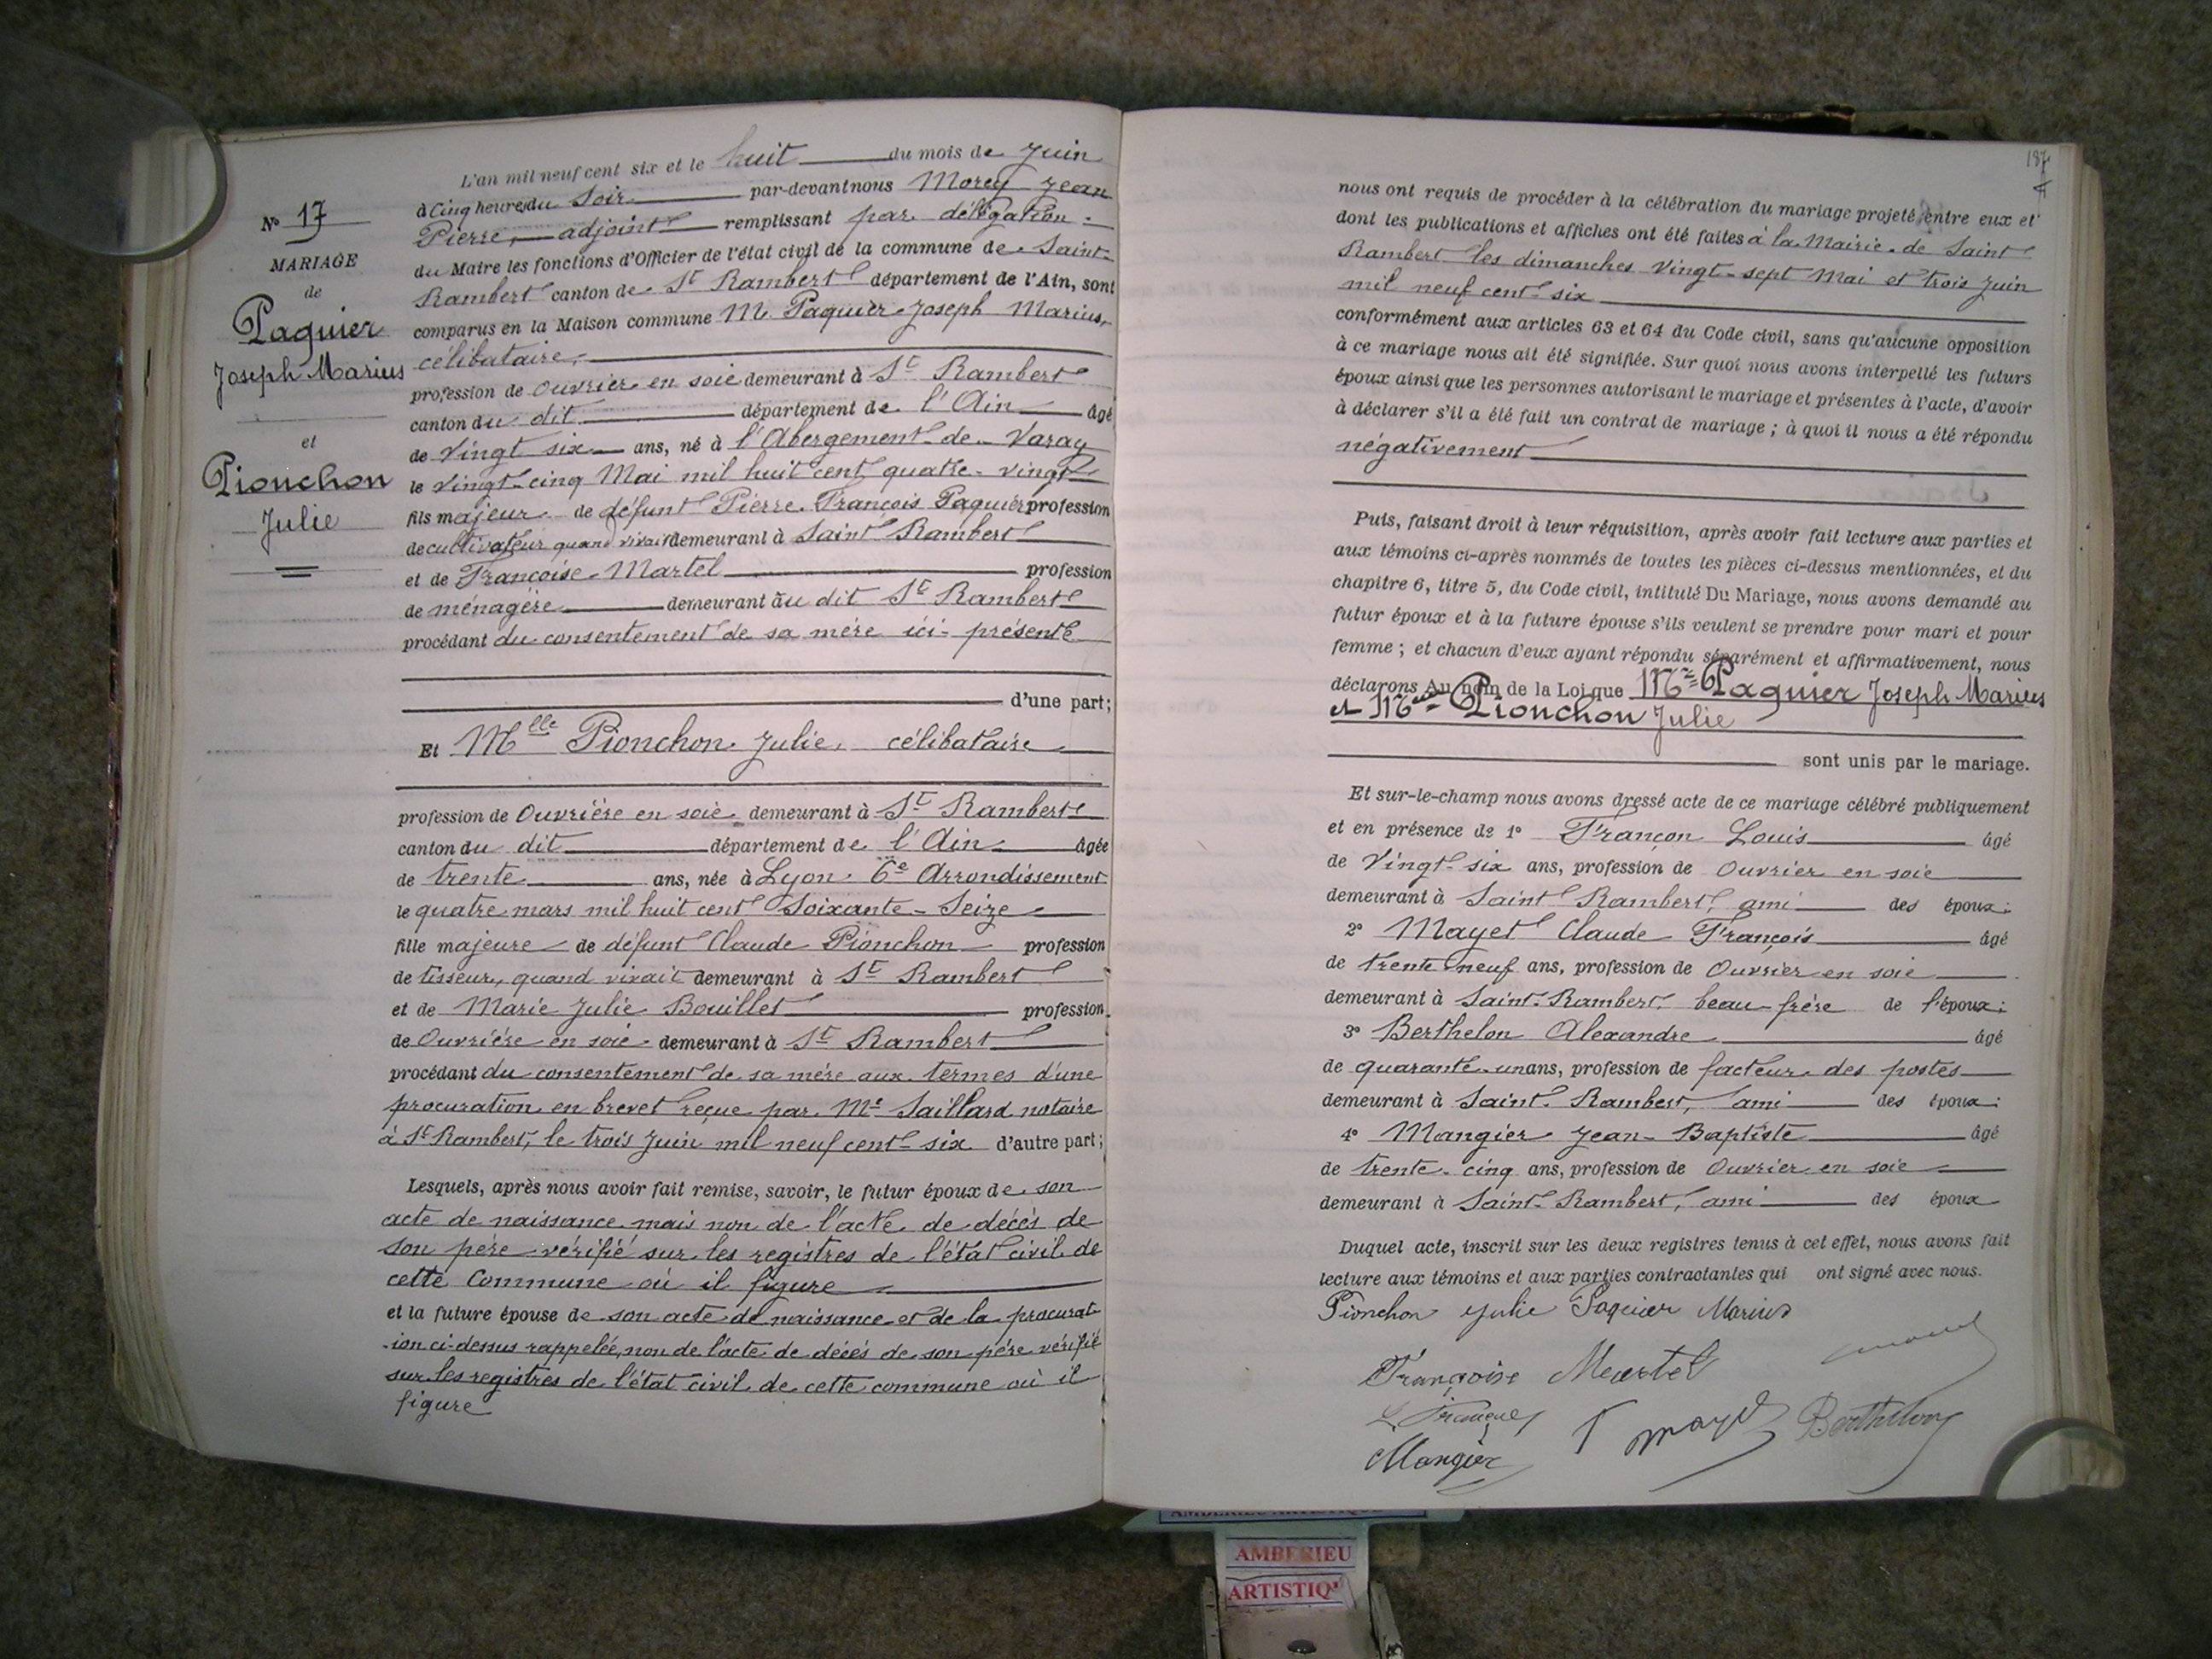 N° 17
MARIAGE
de
Paquier
Joseph Marius
et
Pionchon
Julie
L'an mil neuf cent six et le huit du mois de Juin
à Cinq heures du Soir par-devant nous Morey Jean
Pierre, adjoint remplissant par délégation
du Maire les fonctions d'Officier de l'état civil de la commune de Saint-
Rambert canton de St Rambert département de l'Ain, sont
comparus en la Maison commune M. Paquier Joseph Marius,
célibataire,
profession de Ouvrier en soie demeurant à St Rambert
canton du dit département de l'Ain âgé
de Vingt six ans, né à l'Abergement de Varay
le vingt-cinq Mai mil huit cent quatre-vingt
fils majeur de défunt Pierre François Paquier profession
de cultivateur quand vivait demeurant à Saint Rambert
et de Françoise Martel profession
de ménagère demeurant au dit St Rambert
procédant du consentement de sa mère ici-présente
d'une part;
Et Mlle Pionchon Julie, célibataire
profession de Ouvrière en soie demeurant à St Rambert
canton du dit département de l'Ain âgée
de trente ans, née à Lyon 6e Arrondissement
le quatre mars mil huit cent Soixante-Seize
fille majeure de défunt Claude Pionchon profession
de tisseur, quand vivait demeurant à St Rambert
et de Marie Julie Bouillet profession
de Ouvrière en soie demeurant à St Rambert
procédant du consentement de sa mère aux termes d'une
procuration en brevet reçue par Me Saillard notaire
à St Rambert, le trois Juin mil neuf cent six d'autre part;
Lesquels, après nous avoir fait remise, savoir, le futur époux de son
acte de naissance mais non de l'acte de décès de
son père vérifié sur les registres de l'état civil de
cette Commune où il figure
et la future épouse de son acte de naissance et de la procurat-
-ion ci-dessus rappelée, non de l'acte de décès de son père vérifié
sur les registres de l'état civil de cette commune où il
figure
187
nous ont requis de procéder à la célébration du mariage projeté entre eux et
dont les publications et affiches ont été faites à la Mairie de Saint
Rambert les dimanches vingt-sept Mai et trois Juin
mil neuf cent six
conformément aux articles 63 et 64 du Code civil, sans qu'aucune opposition
à ce mariage nous ait été signifiée. Sur quoi nous avons interpellé les futurs
époux ainsi que les personnes autorisant le mariage et présentes à l'acte, d'avoir
à déclarer s'il a été fait un contrat de mariage ; à quoi il nous a été répondu
négativement
Puis, faisant droit à leur réquisition, après avoir fait lecture aux parties et
aux témoins ci-après nommés de toutes les pièces ci-dessus mentionnées, et du
chapitre 6, titre 5, du Code civil, intitulé Du Mariage, nous avons demandé au
futur époux et à la future épouse s'ils veulent se prendre pour mari et pour
femme ; et chacun d'eux ayant répondu séparément et affirmativement, nous
déclarons Au nom de la Loi que Mr Paquier Joseph Marius
et Melle Pionchon Julie
sont unis par le mariage.
Et sur-le-champ nous avons dressé acte de ce mariage célébré publiquement
et en présence de 1° Françon Louis âgé
de Vingt-six ans, profession de Ouvrier en soie
demeurant à Saint Rambert, ami des époux;
2° Mayet Claude François âgé
de trente neuf ans, profession de Ouvrier en soie
demeurant à Saint-Rambert, beau-frère de l'époux;
3° Berthelon Alexandre âgé
de quarante-un ans, profession de facteur des postes
demeurant à Saint-Rambert, ami des époux;
4° Mangier Jean-Baptiste âgé
de trente-cinq ans, profession de Ouvrier en soie
demeurant à Saint-Rambert, ami des époux
Duquel acte, inscrit sur les deux registres tenus à cet effet, nous avons fait
lecture aux témoins et aux parties contractantes qui ont signé avec nous.
Pionchon Julie Paquier Marius
Françoise Martel
Mayet Berthelon
Mangier
AMBERIEU ARTISTIQUE
AMBERIEU
ARTISTIQ'